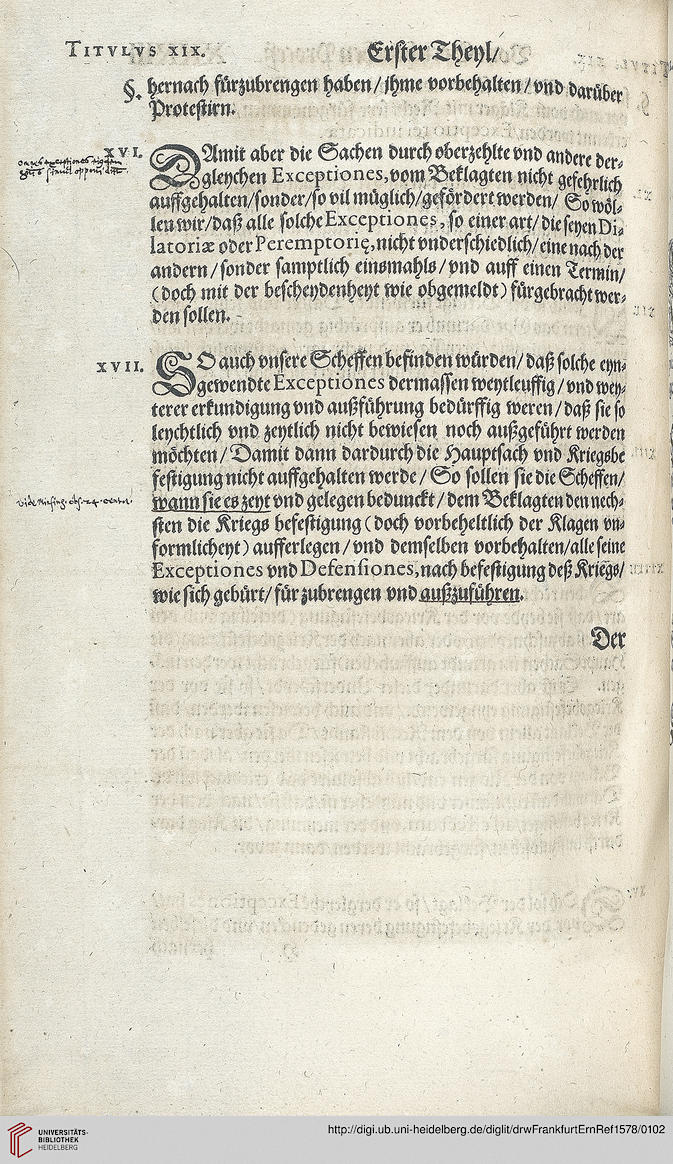 TITVLVS XIX. Erster Theyl/
§. hernach fürzubrengen haben/ihme vorbehalten/vnd darüber
Protestirn.
XVI. DAmit aber die Sachen durch oberzehlte vnd andere der-
gleychen Exceptiones, vom Beklagten nicht gefehrlich
auffgehalten/sonder/so vil müglich/gefördert werden/ So wöl-
len wir/daß alle solche Exceptiones, so einer art/die seyen Di-
latoriæ oder Peremptorię, nicht vnderschiedlich/eine nach der
andern/sonder samptlich einsmahls/vnd auff einen Termin/
(doch mit der bescheydenheyt wie obgemeldt) fürgebracht wer-
den sollen.
XVII. SO auch vnsere Scheffen befinden würden/daß solche eyn-
gewendte Exceptiones dermassen weytleuffig/vnd wey-
terer erkundigung vnd außführung bedürffig weren/daß sie so
leychtlich vnd zeytlich nicht bewiesen noch außgeführt werden
möchten/Damit dann dardurch die Hauptsach vnd Kriegsbe
festigung nicht auffgehalten werde/So sollen sie die Scheffen/
wann sie es zeyt vnd gelegen bedunckt/dem Beklagten den nech-
sten die Kriegs befestigung (doch vorbeheltlich der Klagen vn-
formlicheyt) aufferlegen/vnd demselben vorbehalten/alle seine
Exceptiones vnd Defensiones, nach befestigung deß Kriegs/
wie sich gebürt/für zubrengen vnd außzuführen.
Der
exceptiones
simul
vide
UNIVERSITÄTS-
BIBLIOTHEK
HEIDELBERG
http://digi.ub.uni-heidelberg.de/diglit/drwFrankfurtErnRef1578/0102